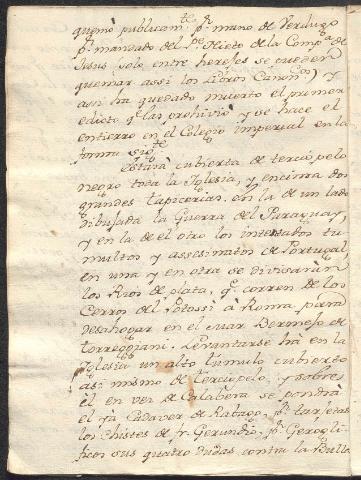 quemò publicam.te p.r mano de Verdugo
p.r mandado del P.e Nieto de la Comp.a de
Jesus solo entre hereses se pueden
quemar assi los Libros Canon.cos) y
asi ha quedado muerto el primer
edicto q.e las prohiviò y se hace el
entierro en el Colegio imperial en la
forma sig.te
Estarà cubierta de terciopelo
negro toda la Iglesia, y encima dos
grandes tapicerias, en la de un lado
dibujada la Guerra del Paraguay,
y en la de el otro los intentados tu
multos y assesinatos de Portugal,
en una y en otra se divisaràn
los Rios de plata, q.e corren de los
Cerros del Potossi à Roma para
desahogar en el mar Bermejo de
torregiani. Levantarse hà en la
Iglesia un alto tumulo cubierto
asi mismo de terciopelo, y sobre
èl en vez de Calabera se pondrà
el ya Cadaver de Rabago, p.r tarjetas
los chistes de fr. Gerundio, p.r Gerogli
ficos sus quatro dudas contra la Bulla